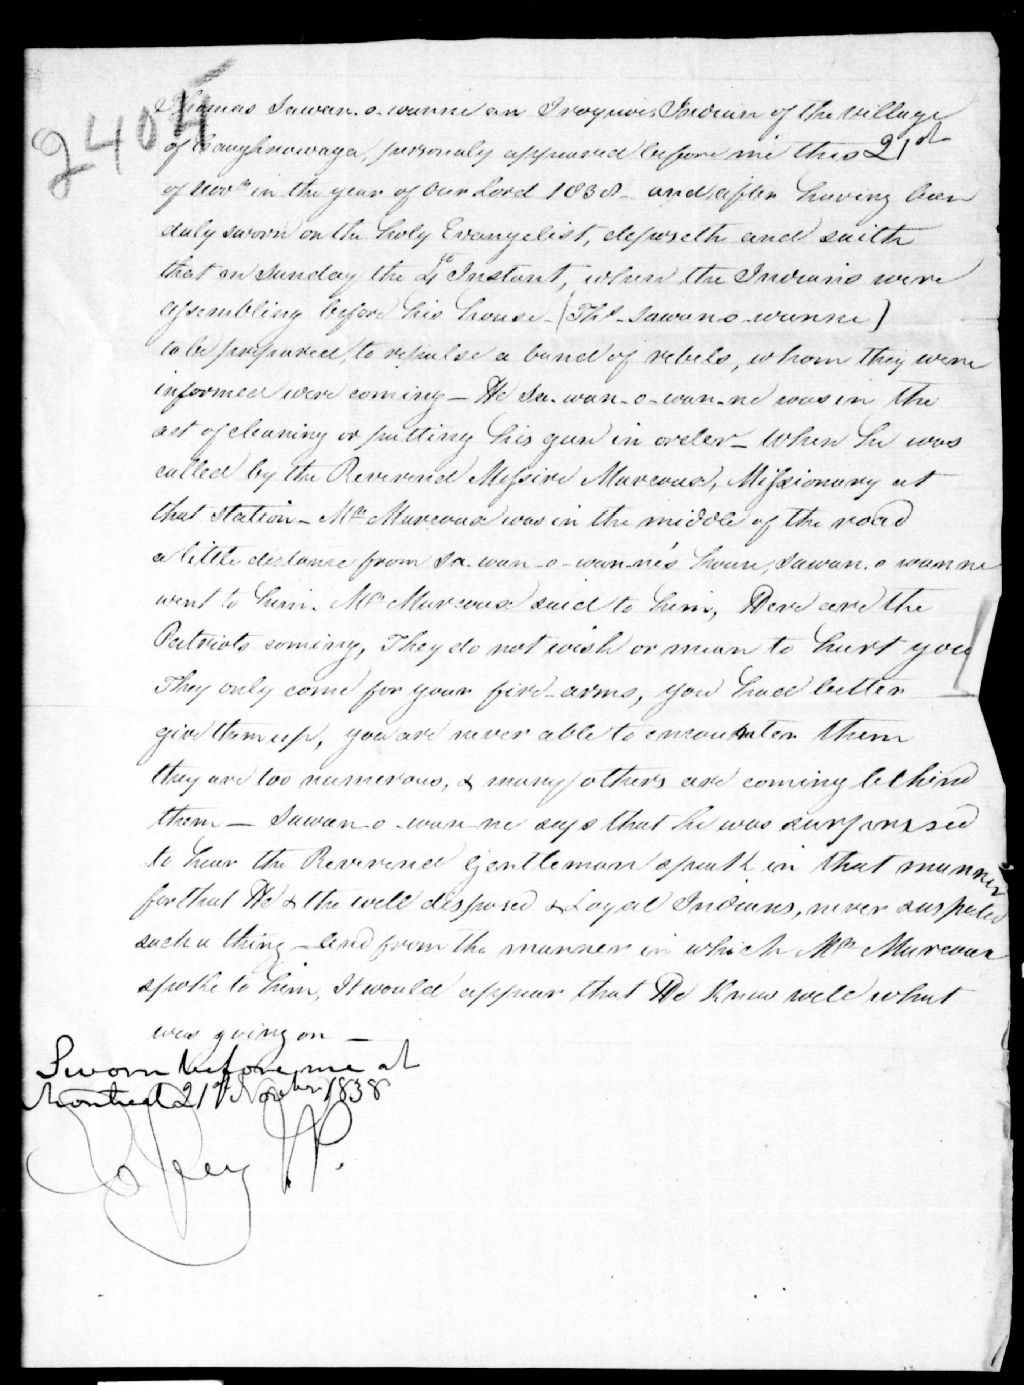 2404
Thomas Sawan-o-wanne an Iroquois Indian of the Village
of Caughnawaga, personaly appeared before me this 21st
of Novr in the year of Our Lord 1838 - and after having been
duly sworn on the holy Evangelist, deposeth and saith
that on Sunday the 4th Instant, when the Indians were
assembling before his house - (Ths Sawano-wanne)
to be prepared, to repulse a band of rebels, whom they were
informed were coming - He Sa-wan-o-wan-ne was in the
act of cleaning or putting his gun in order - when he was
called by the Reverend Messire Marcoux, Missionary at
that Station - Mr Marcoux was in the middle of the road
a little distance from Sa-wan-o-wan-ne's house, Sawan-o wanne
went to him. Mr Marcoux said to him, Here are the
Patriots coming, They do not wish or mean to hurt you
They only come for your fire-arms, you had better
give them up, you are never able to encounter them
they are too numerous, & many others are coming behind
them - Sawan-o-wan-ne says that he was surprised
to hear the Reverend Gentleman speak in that manner
for that He & the well disposed & Loyal Indians, never suspected
such a thing - And from the manner in which Mr Marcoux
spoke to him, It would appear that He Knew well what
was going on -
Sworn before me at
Montreal 21st Novber 1838
JP.